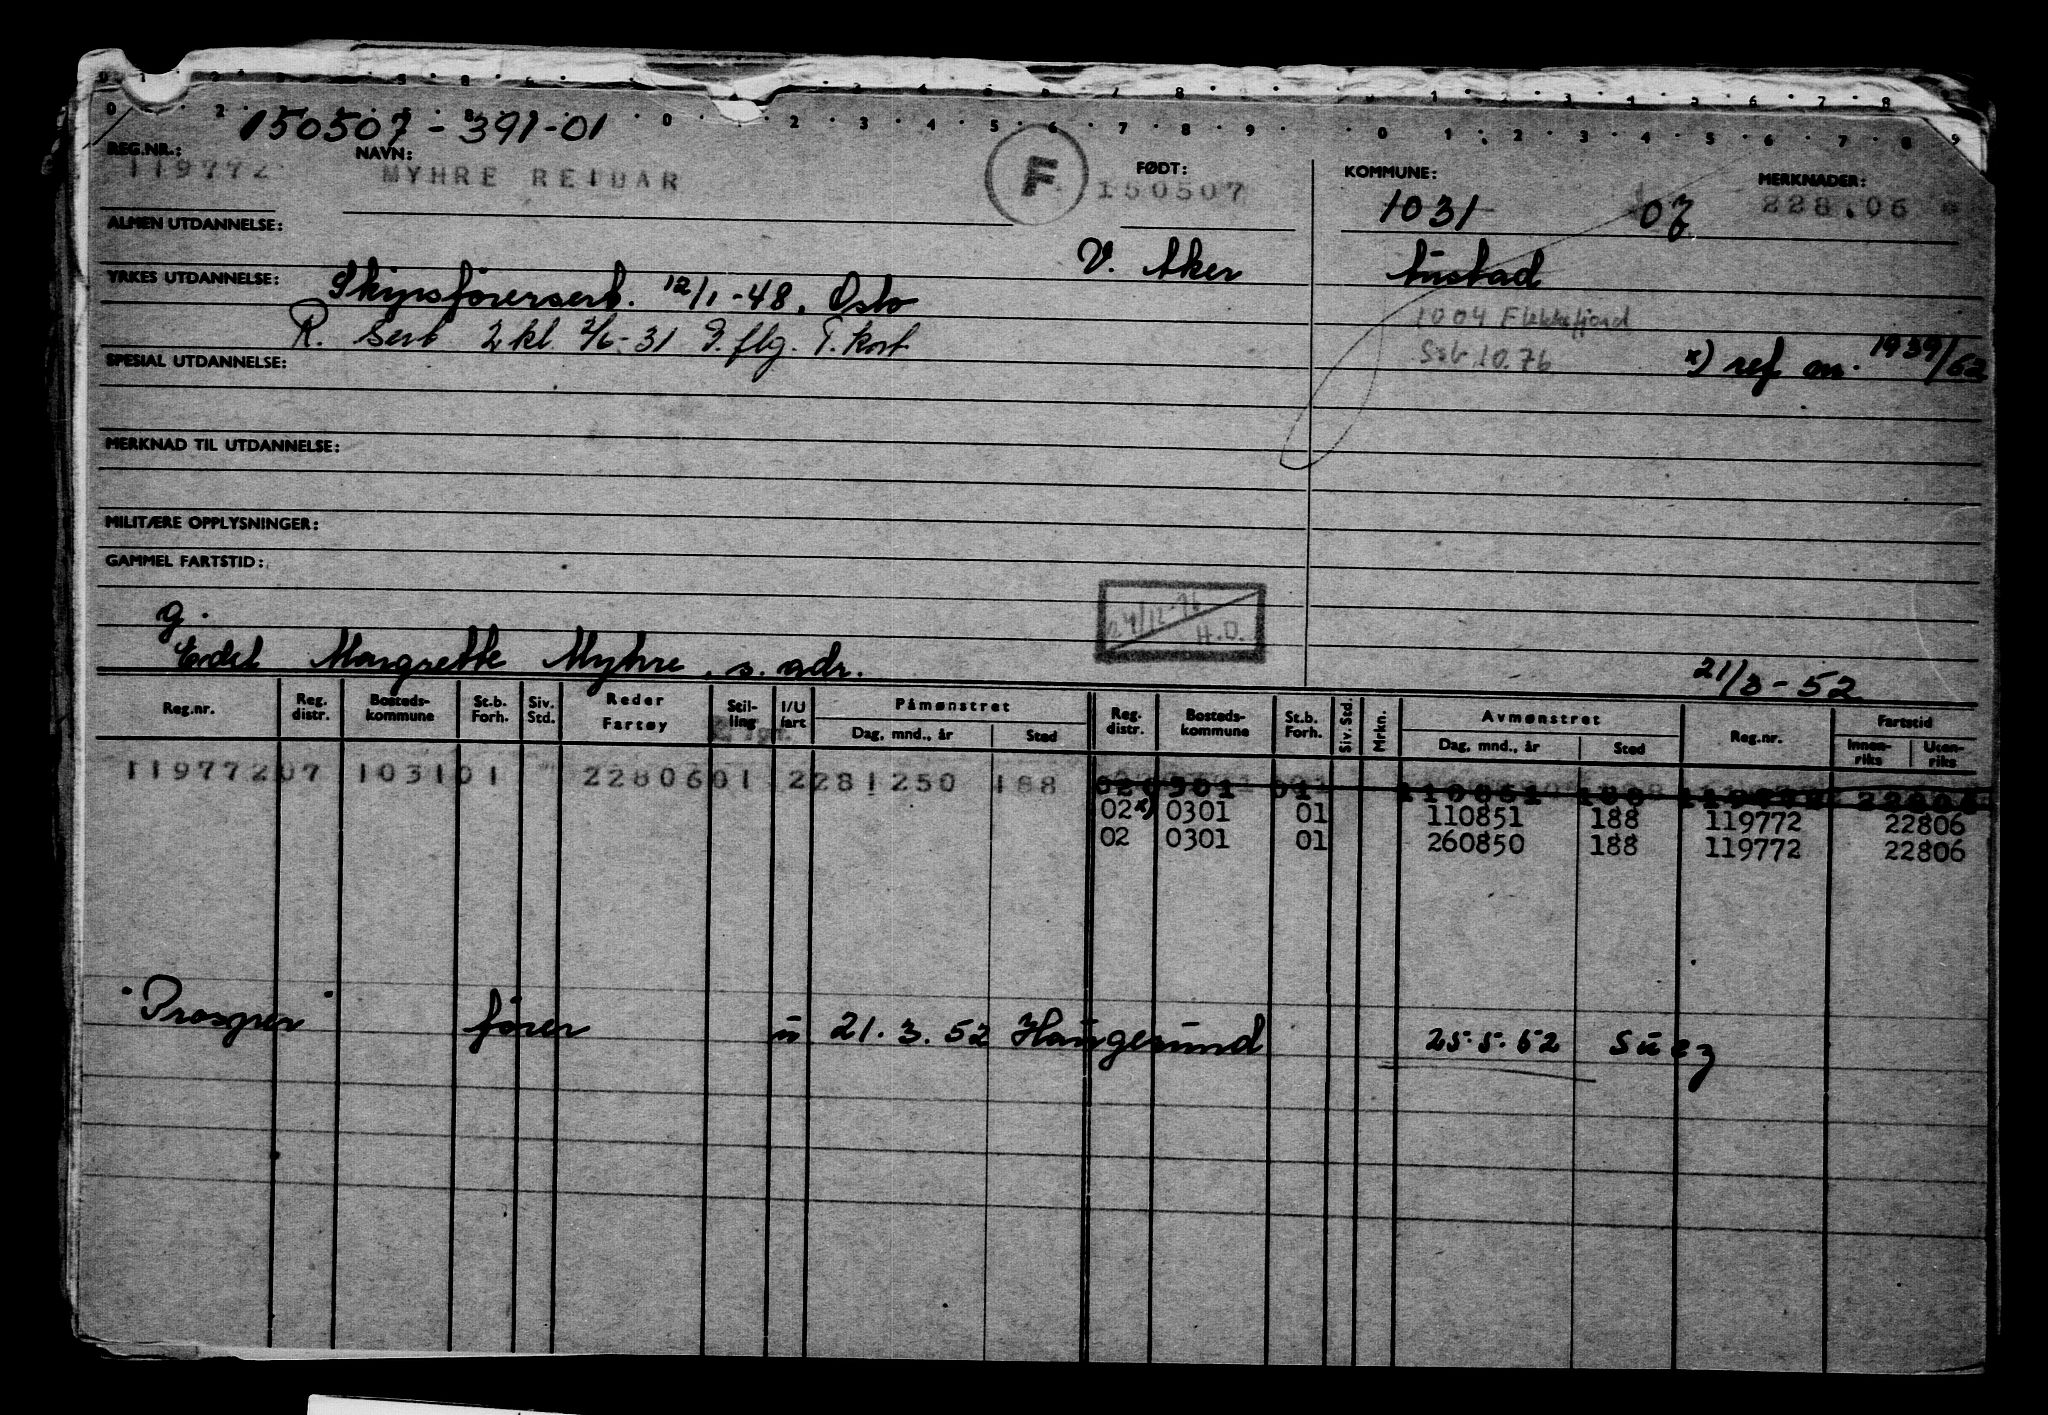 150507-391-01
REG.NR.: NAVN: FØDT: KOMMUNE: MERKNADER:
119772 MYHRE REIDAR F 150507 1031 07 228.06
ALMEN UTDANNELSE:
V. Aker Austad
YRKES UTDANNELSE: Skipsførersert. 12/1-48. Oslo
1004 Flekkefjord
R. Sert 2 kl 2/6-31 G. flg. T. kort
Ssb 10.76 x) ref nr. 1939/62
SPESIAL UTDANNELSE:
MERKNAD TIL UTDANNELSE:
MILITÆRE OPPLYSNINGER:
GAMMEL FARTSTID:
g.
H.O.
Edel Margrethe Myhre, s. adr. 21/3-52
Reg.nr. Reg. distr. Bosteds-kommune St.b. Forh. Siv. Std. Reder Fartøy Stil-ling I/U fart Påmønstret Dag, mnd., år Sted Reg. distr. Bosteds-kommune St.b. Forh. Siv. Std. Mrkn. Avmønstret Dag, mnd., år Sted Reg.nr. Fartstid Innen-riks Uten-riks
119772 07 1031 01 22806 01 2 281250 188
02 x) 0301 01 110851 188 119772 22806
02 0301 01 260850 188 119772 22806
"Prosper" fører u 21.3.52 Haugesund 25.5.52 Suez